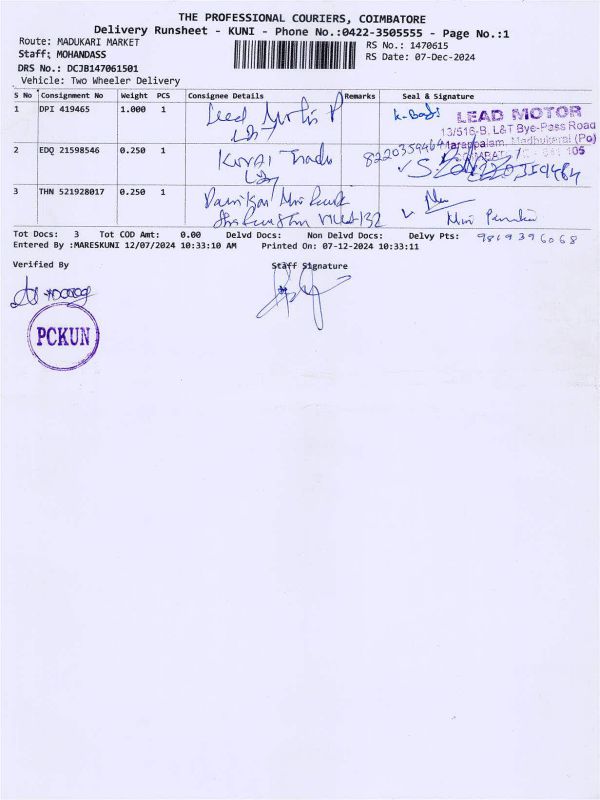 THE PROFESSIONAL COURIERS, COIMBATORE
Delivery Runsheet - KUNI - Phone No.:0422-3505555 - Page No.:1
Route: MADUKARI MARKET RS No.: 1470615
Staff: MOHANDASS RS Date: 07-Dec-2024
DRS No.: DCJB147061501
Vehicle: Two Wheeler Delivery
S No Consignment No Weight PCS Consignee Details Remarks Seal & Signature
1 DPI 419465 1.000 1 Lead
LEAD MOTOR
13/516-B, L&T Bye-Pass Road
Marappalam, Madhukarai (Po)
105
2 EDQ 21598546 0.250 1 8220359464
3 THN 521928017 0.250 1
Tot Docs: 3 Tot COD Amt: 0.00 Delvd Docs: Non Delvd Docs: Delvy Pts: 9869396068
Entered By :MARESKUNI 12/07/2024 10:33:10 AM Printed On: 07-12-2024 10:33:11
Verified By Staff Signature
PCKUN